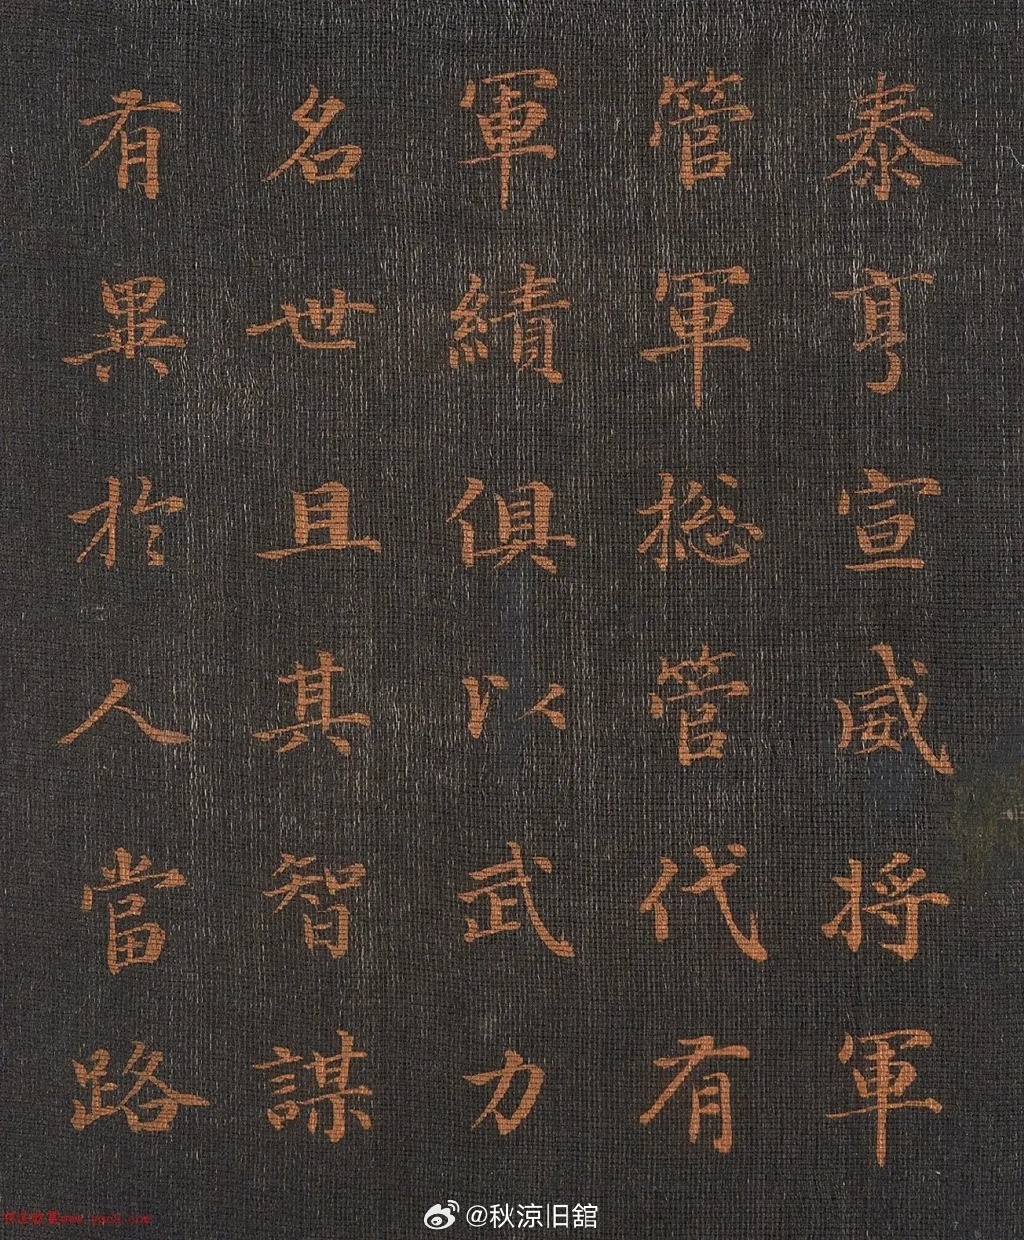 泰亨宣威将軍
管軍総管代有
軍績俱以武力
名世且其智謀
有異於人當路
@秋涼旧舘